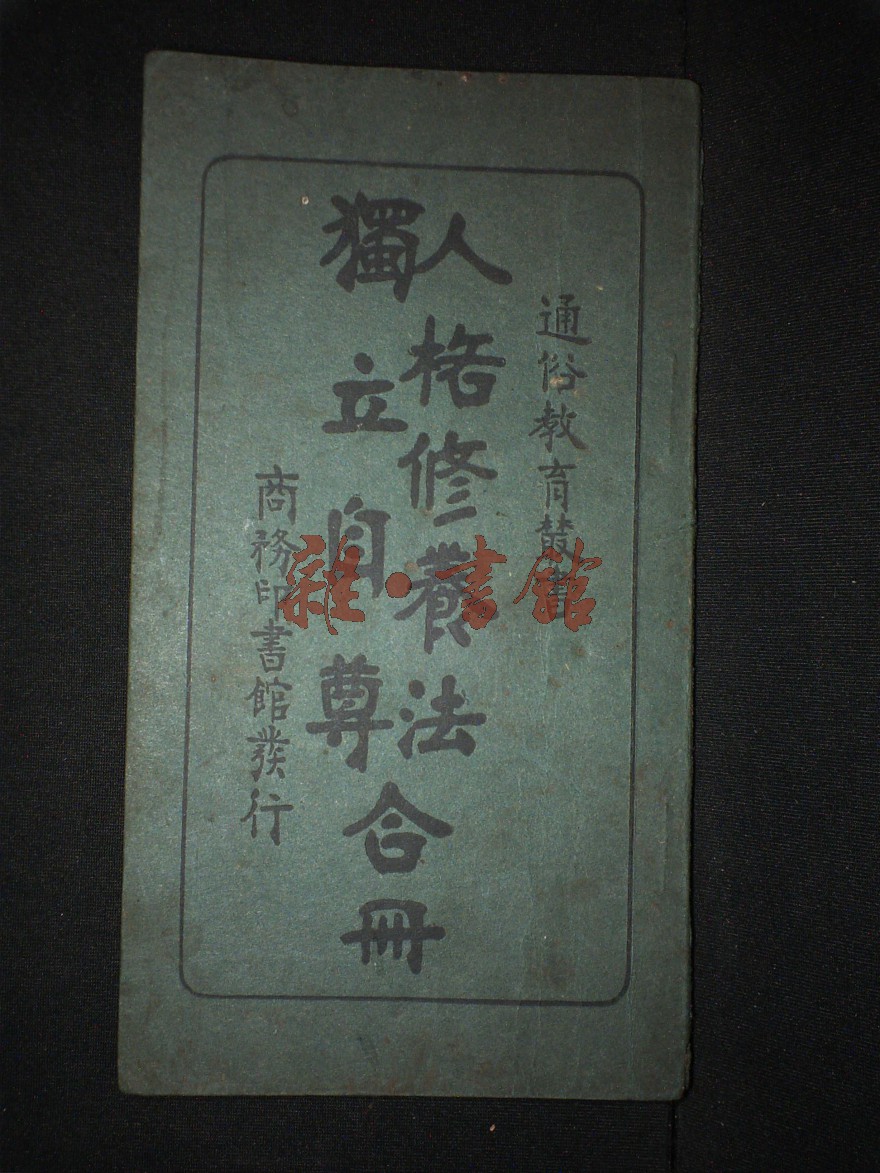 通俗教育叢書
人格修養法
獨立自尊
合冊
商務印書館發行
雜·書館